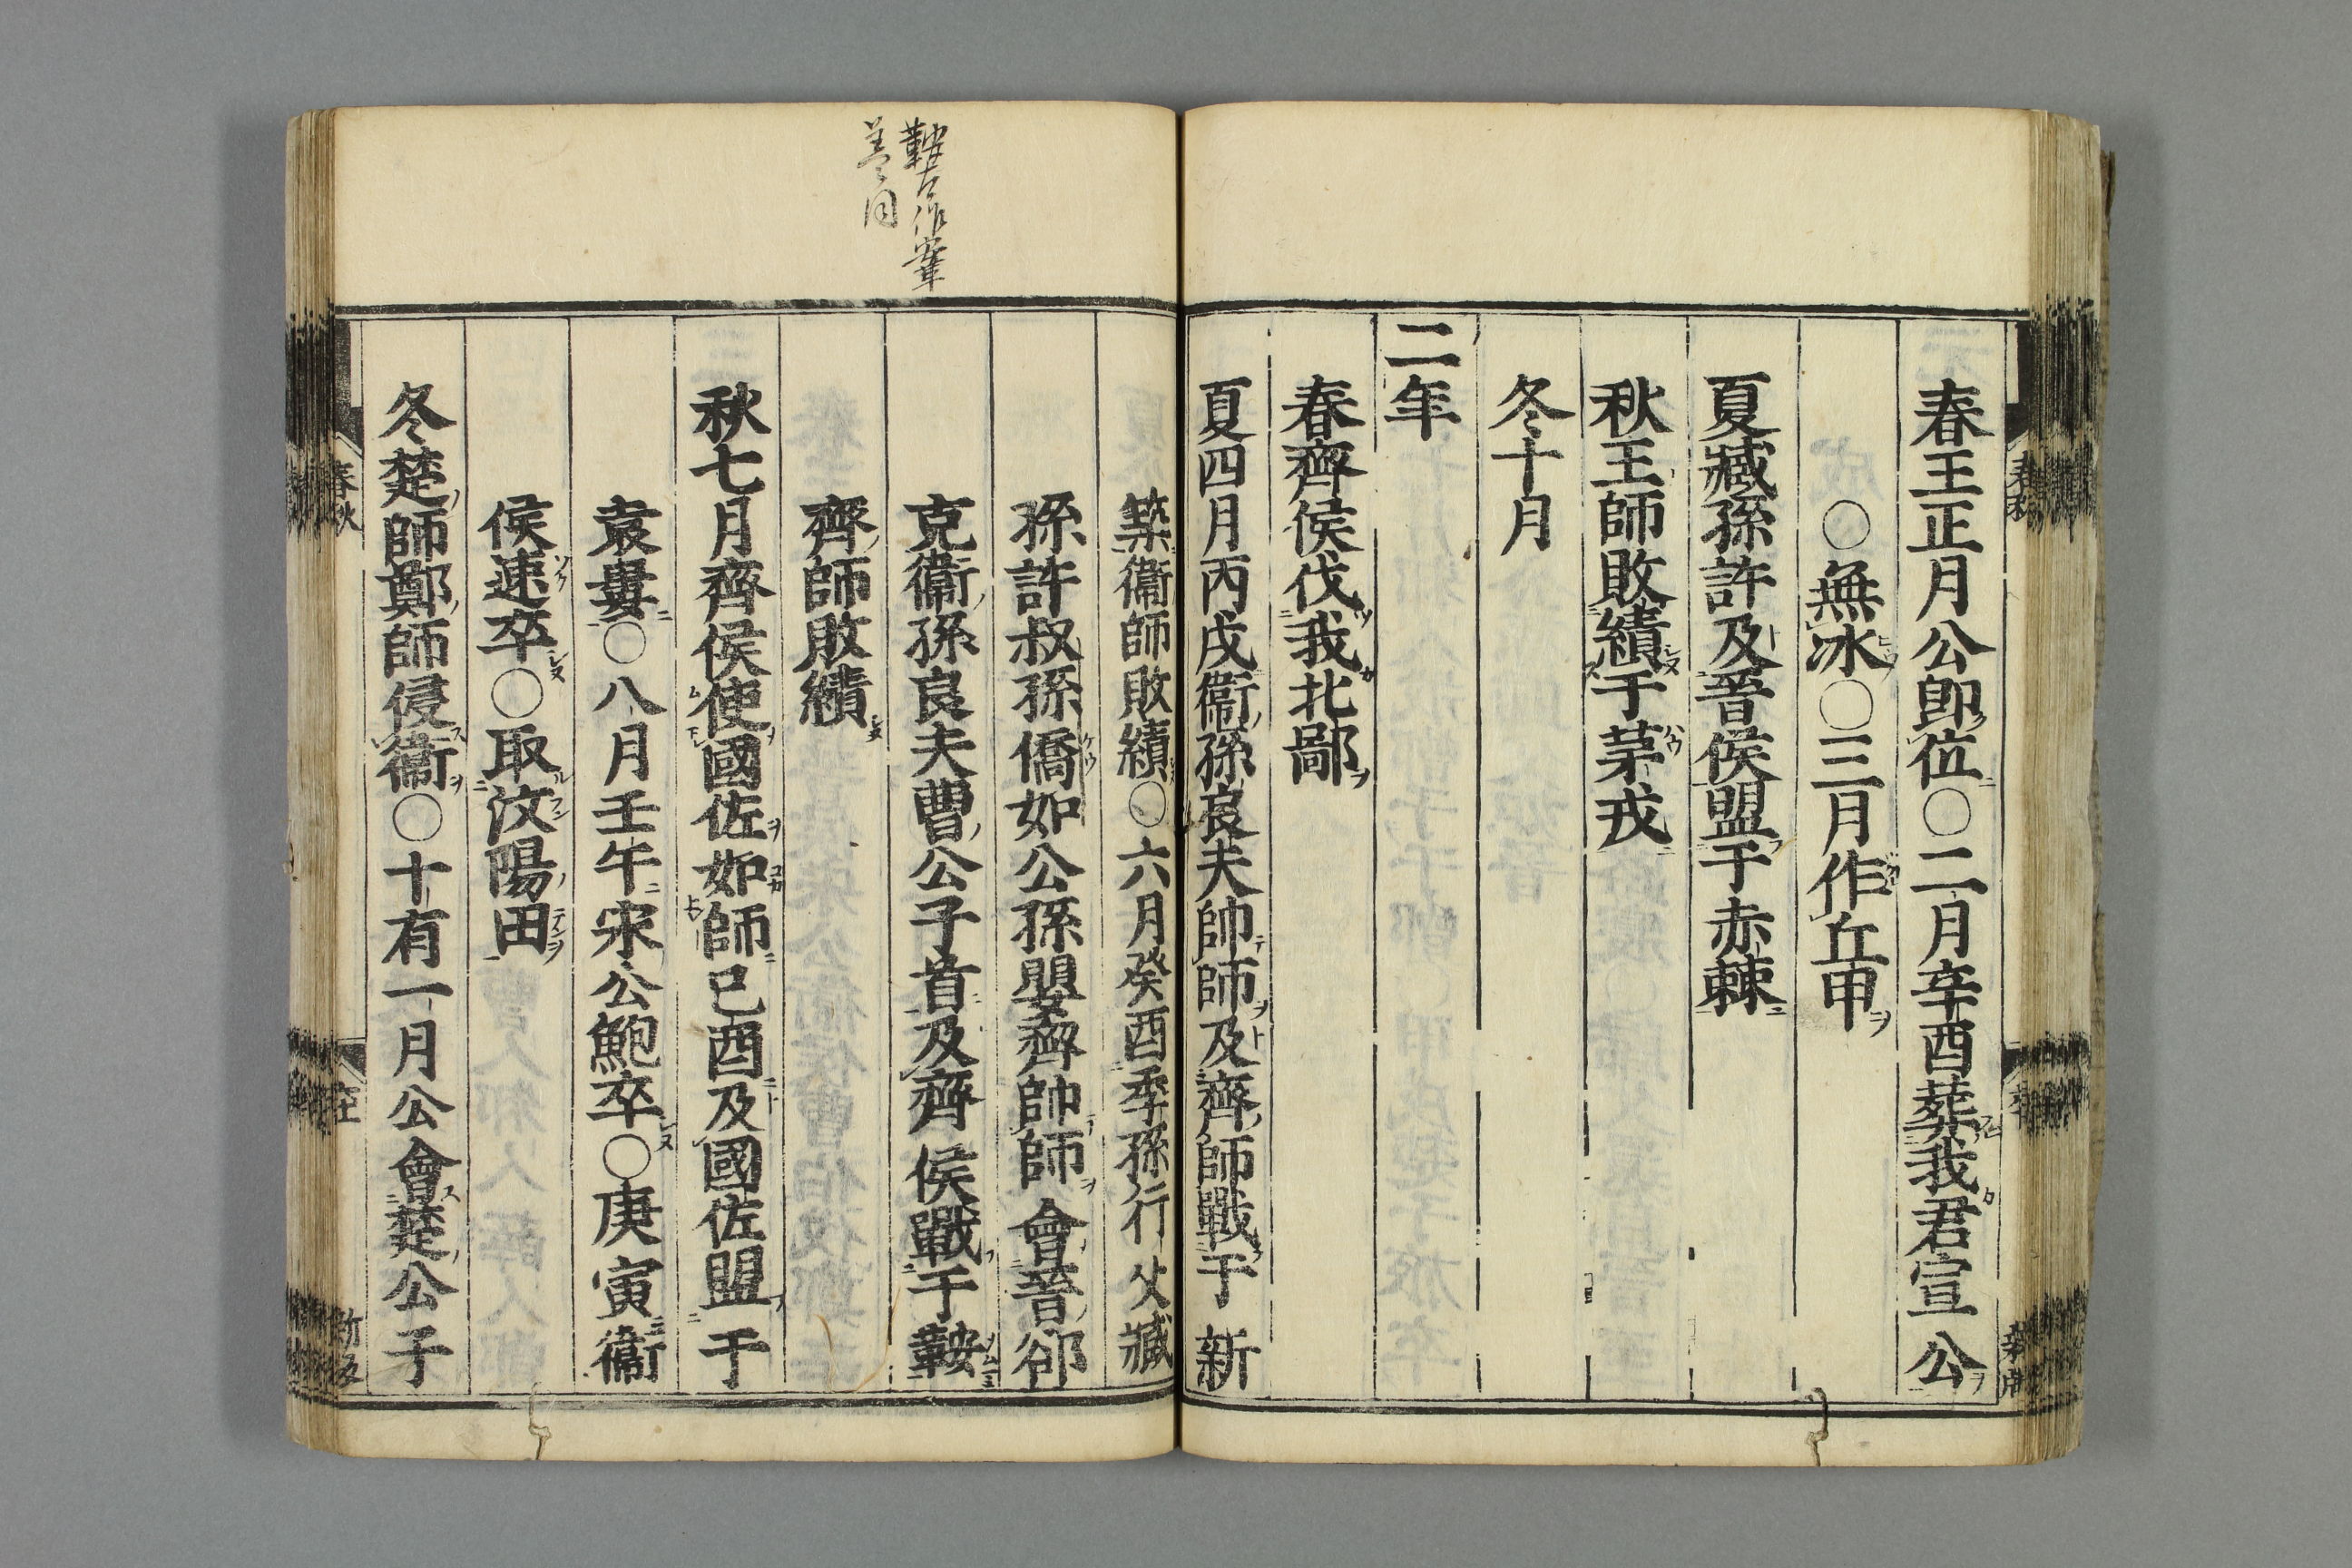 春王正月公即位〇二月辛酉葬我君宣公
〇無冰〇三月作丘甲
夏臧孫許及晉侯盟于赤棘
秋王師敗績于茅戎
冬十月
二年
春齊侯伐我北鄙
夏四月丙戌衞孫良夫帥師及齊師戰于新
築衞師敗績〇六月癸酉季孫行父臧
孫許叔孫僑如公孫嬰齊帥師會晉郤
克衞孫良夫曹公子首及齊侯戰于鞍
齊師敗績
秋七月齊侯使國佐如師己酉及國佐盟于
袁婁〇八月壬午宋公鮑卒〇庚寅衞
侯速卒〇取汶陽田
冬楚師鄭師侵衞〇十有一月公會楚公子
鞍古作鞌
春秋